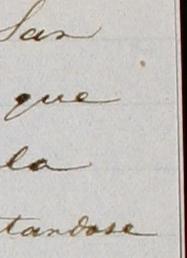 San
que
la
tandose